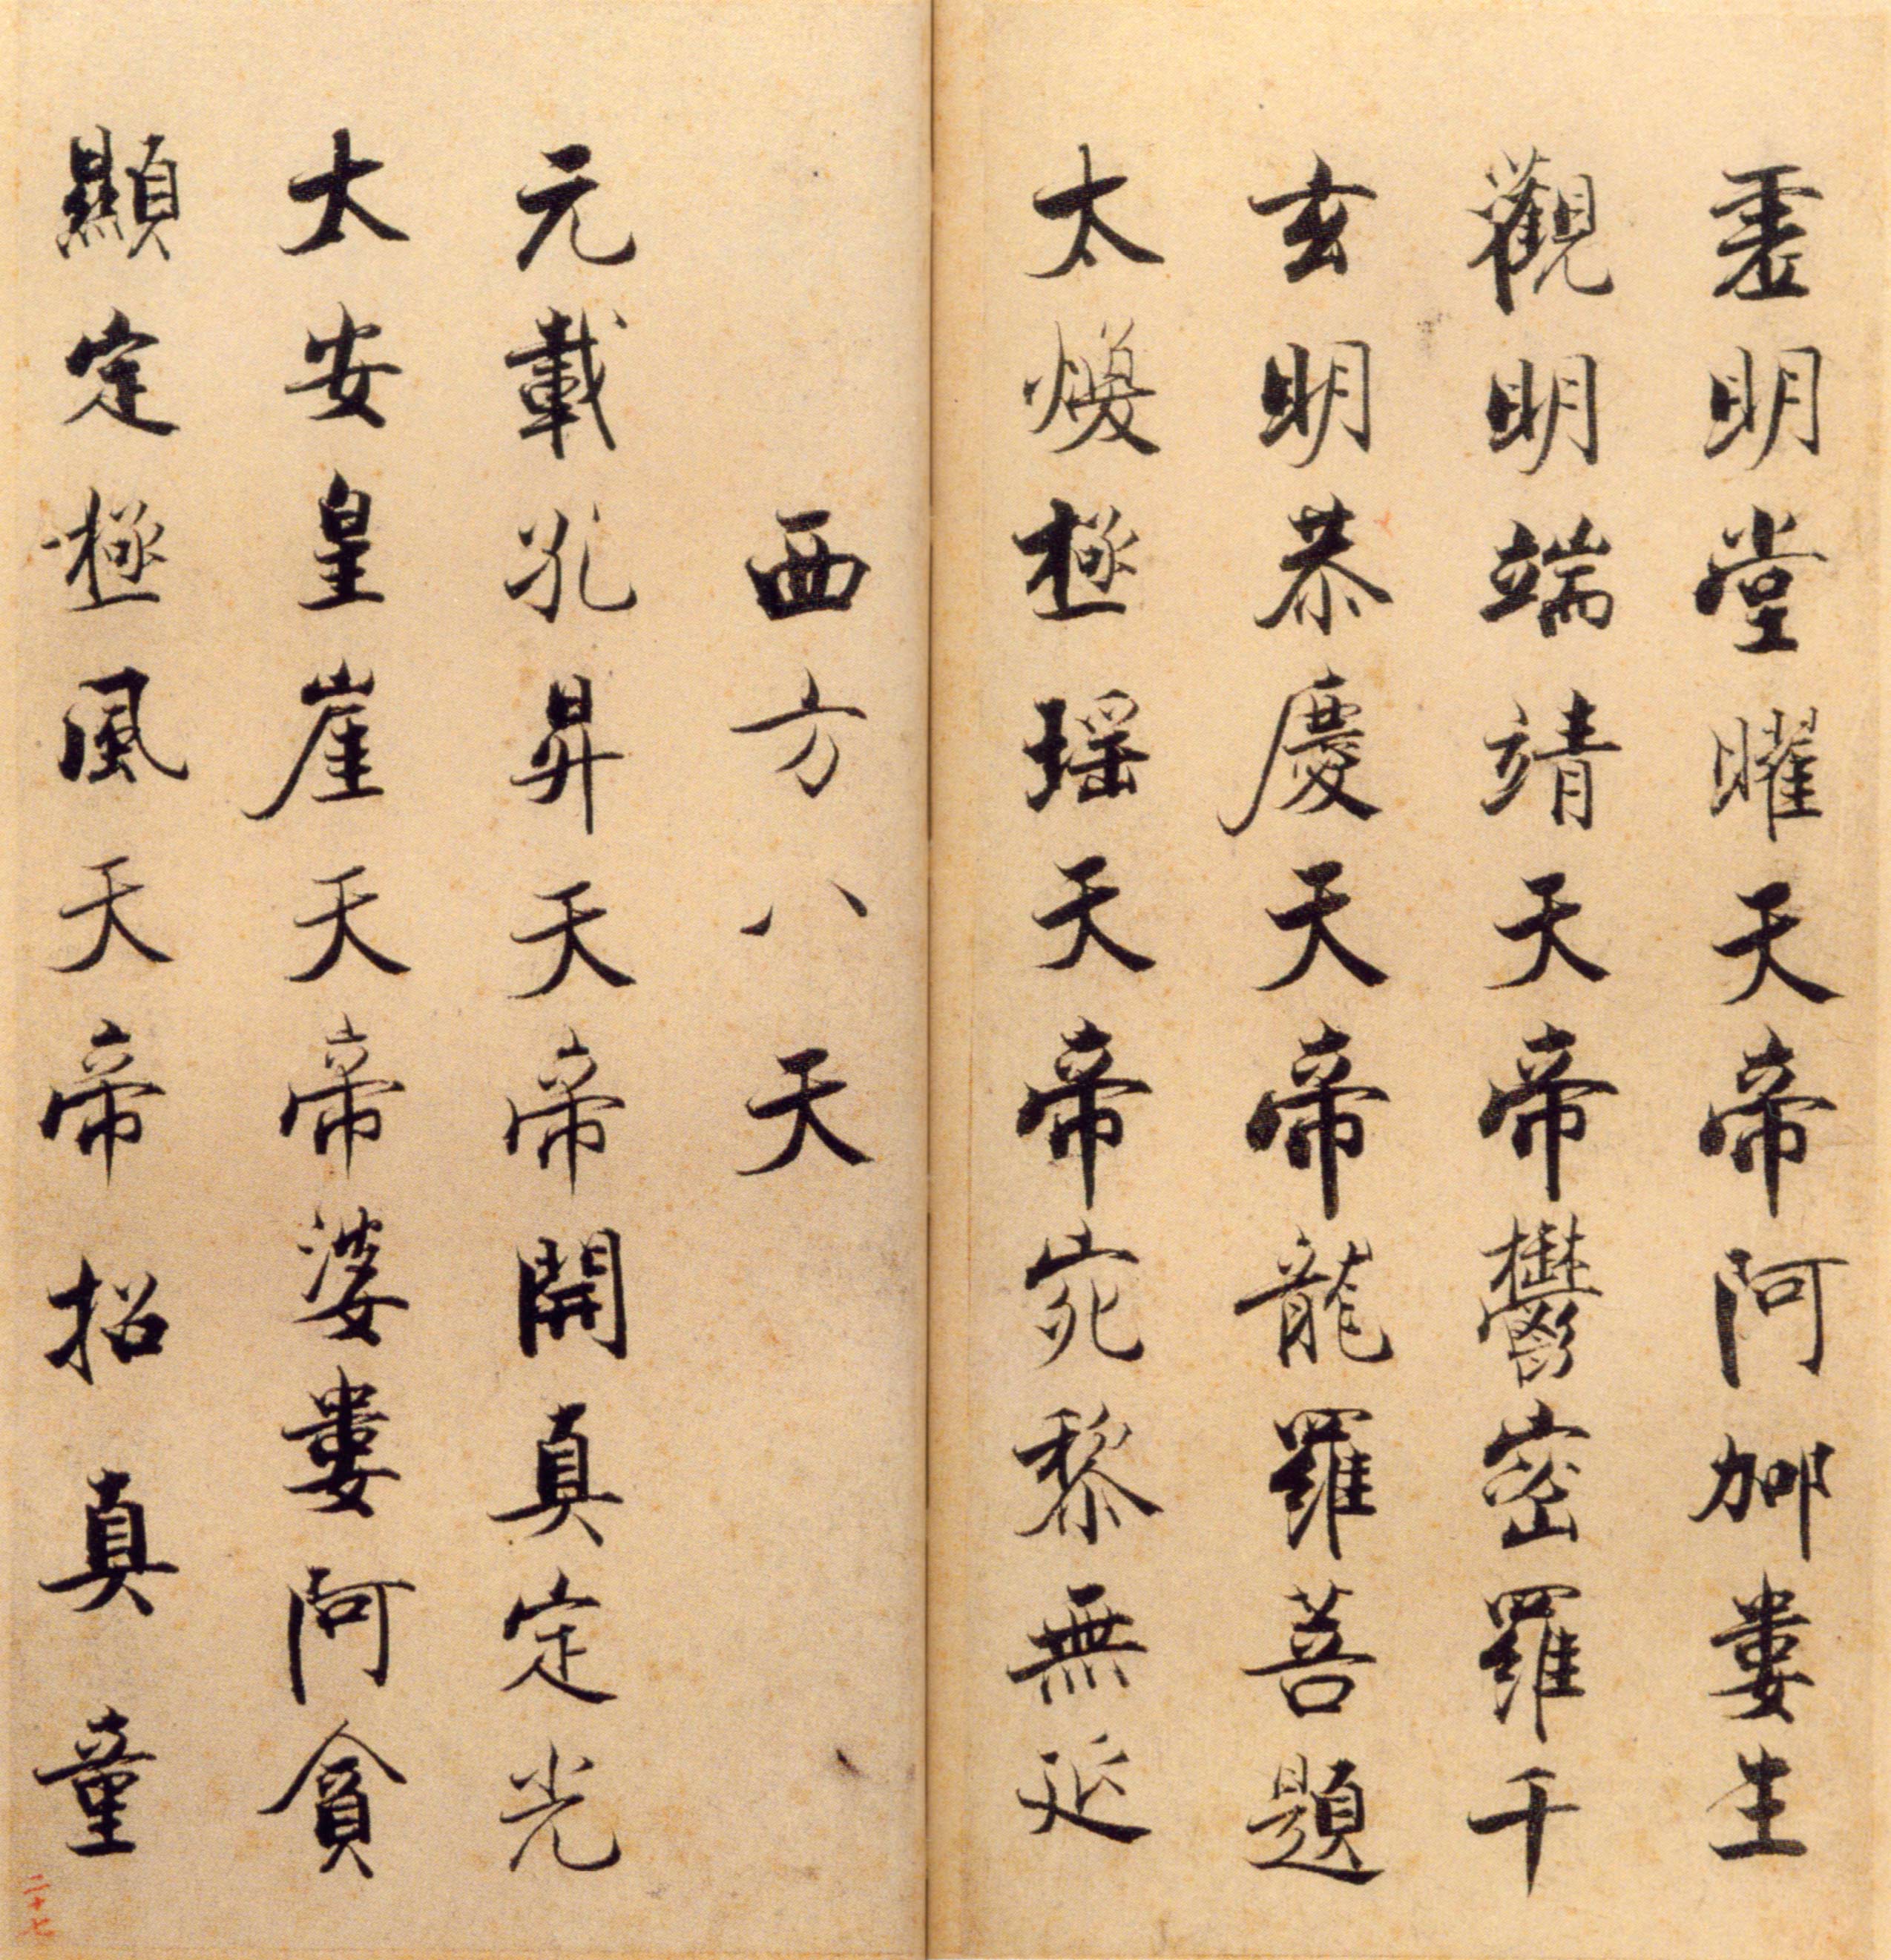 虛明堂曜天帝阿䣊婁生
觀明端靖天帝鬱密羅千
玄明恭慶天帝龍羅菩題
太煥極瑤天帝宛黎無延
西方八天
元載孔昇天帝開真定光
太安皇崖天帝婆婁阿貪
顯定極風天帝招真童
二十七